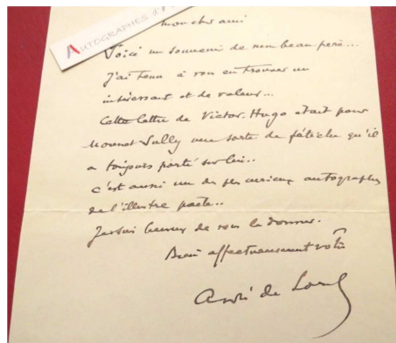 AUTOGRAPHES
mon cher ami
Voici un souvenir de mon beau père...
J'ai tenu à vous en trouver un
intéressant et de valeur...
Cette lettre de Victor Hugo était pour
Mounet Sully une sorte de fétiche qu'il
a toujours porté sur lui..
c'est aussi un des plus curieux autographes
de l'illustre poète..
Je suis heureux de vous le donner.
Bien affectueusement vôtre
André de Lorde